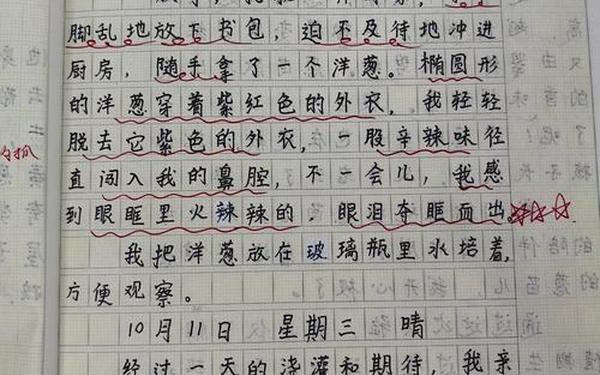 脚乱地放下书包，迫不及待地冲进
厨房，随手拿了一个洋葱。椭圆形
的洋葱穿着紫红色的外衣，我轻轻
脱去它紫色的外衣，一股辛辣味径
直闯入我的鼻腔，不一会儿，我感
到眼眶里火辣辣的，眼泪夺眶而出。
我把洋葱放在玻璃瓶里水培着，
方便观察。
10月11日 星期三 晴
经过一天的浇灌和期待，我亲